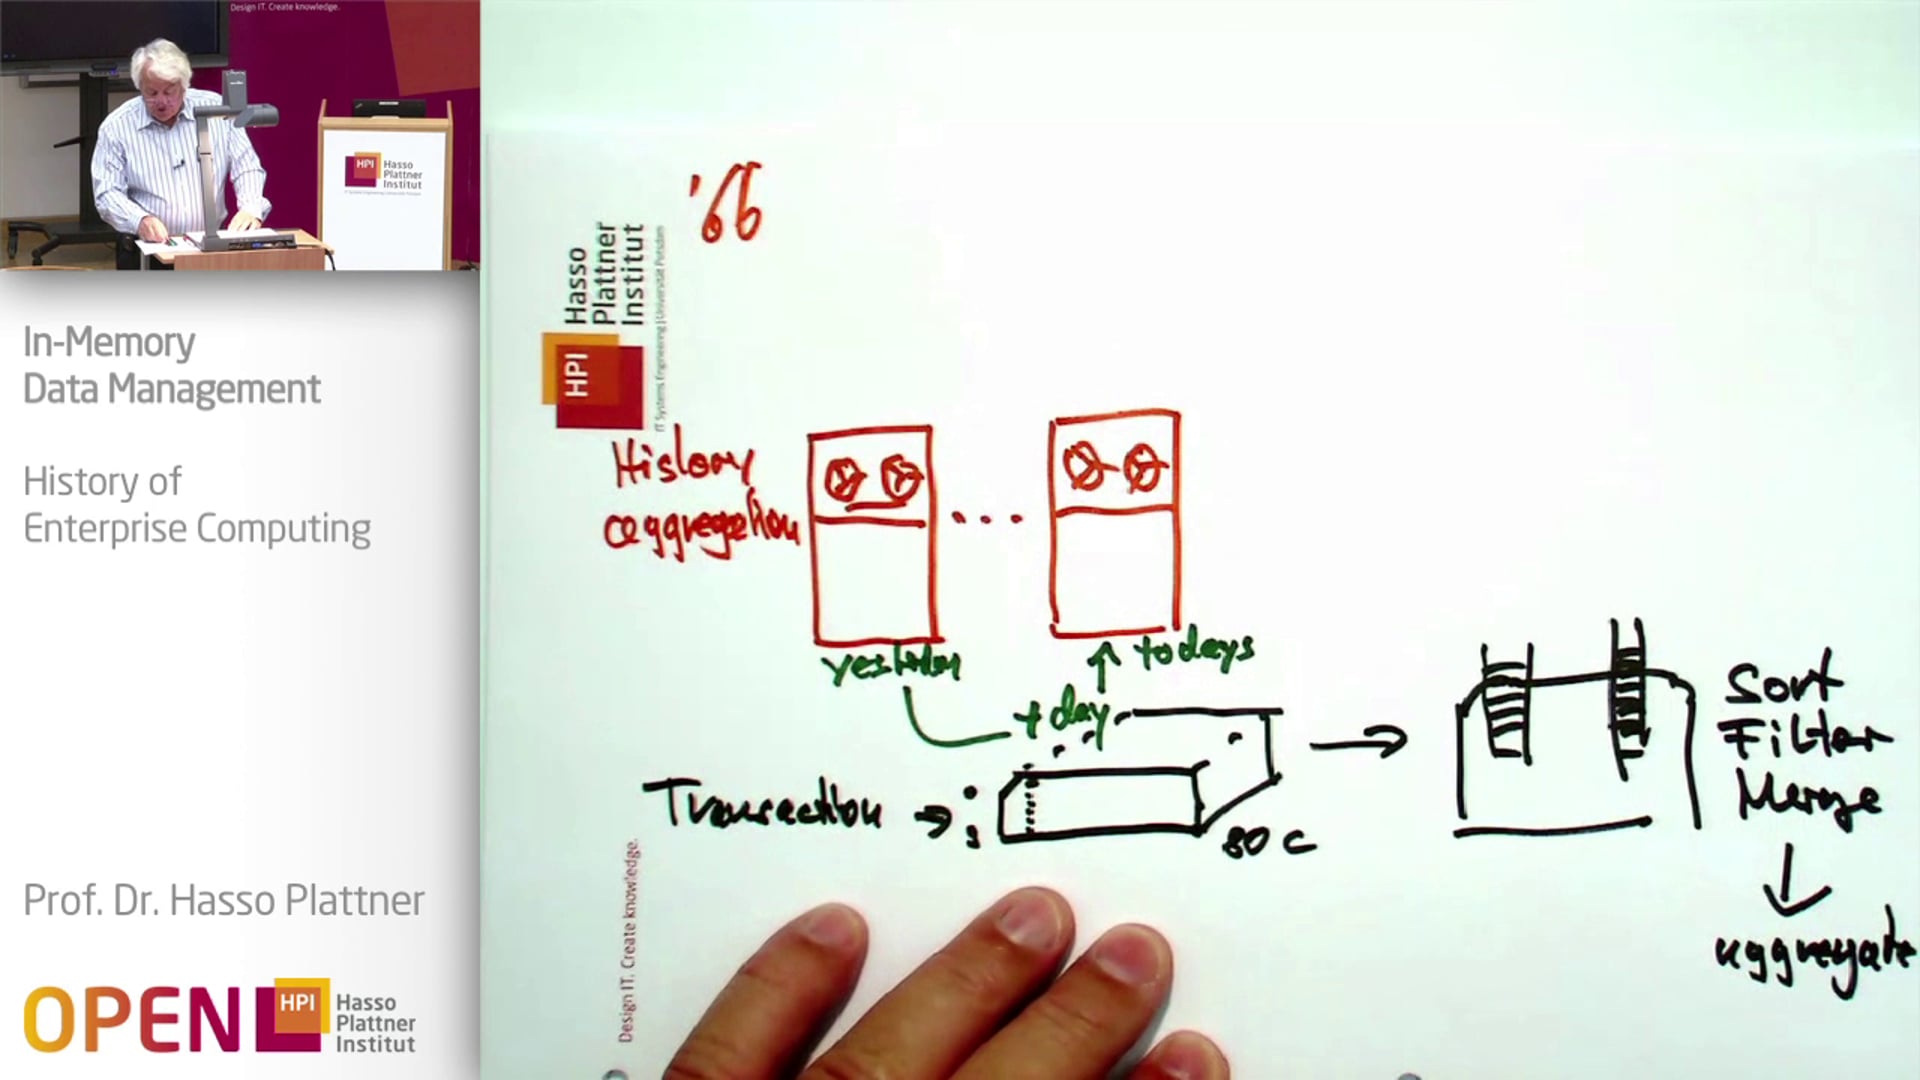 Design IT. Create knowledge.
HPI Hasso
Plattner
Institut
In-Memory
Data Management
History of
Enterprise Computing
Prof. Dr. Hasso Plattner
OPEN HPI
Hasso
Plattner
Institut
'66
HPI
Hasso
Plattner
Institut
IT Systems Engineering | Universität Potsdam
History
aggregation
...
yesterday
↑ todays
+ day
Transaction →
80 C
→
Sort
Filter
Merge
↓
aggregate
Design IT. Create knowledge.